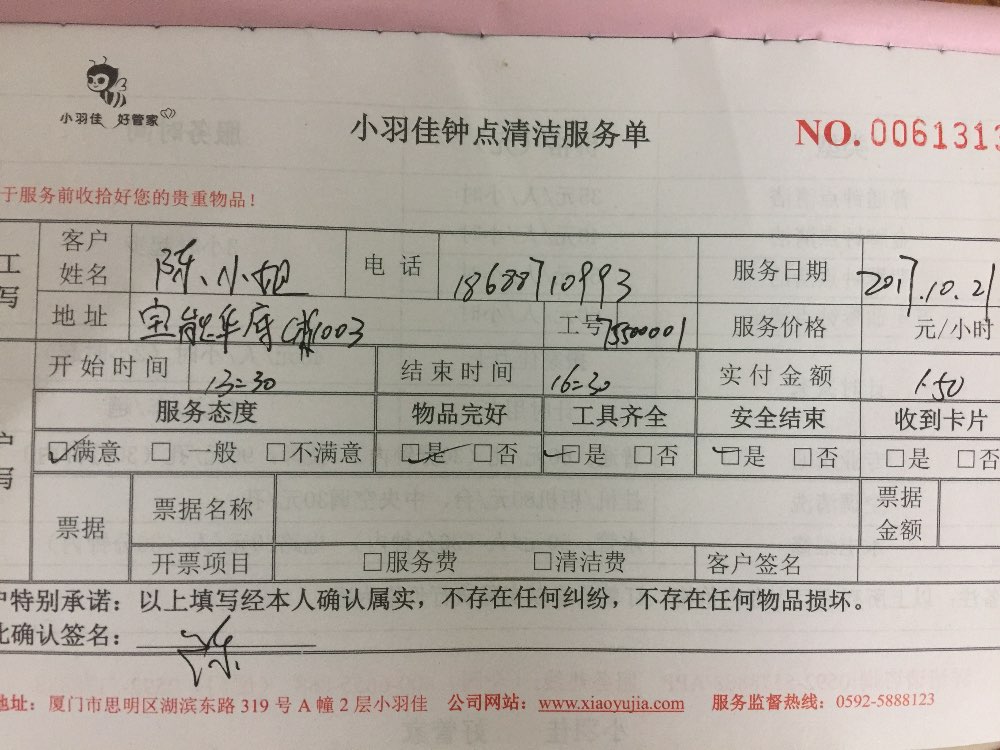 小羽佳 好管家
小羽佳钟点清洁服务单
NO. 0061313
于服务前收拾好您的贵重物品！
工 客户姓名 陈小姐 电话 18688710993 服务日期 2017.10.21
写 地址 宝能华府 1003 工号 75500001 服务价格 元/小时
开始时间 13:30 结束时间 16:30 实付金额 150
服务态度 物品完好 工具齐全 安全结束 收到卡片
户 ☑满意 □一般 □不满意 ☑是 □否 ☑是 □否 ☑是 □否 □是 □否
写 票据 票据名称 票据金额
开票项目 □服务费 □清洁费 客户签名
户特别承诺：以上填写经本人确认属实，不存在任何纠纷，不存在任何物品损坏。
此确认签名：
地址：厦门市思明区湖滨东路 319 号 A 幢 2 层小羽佳 公司网站：www.xiaoyujia.com 服务监督热线：0592-5888123